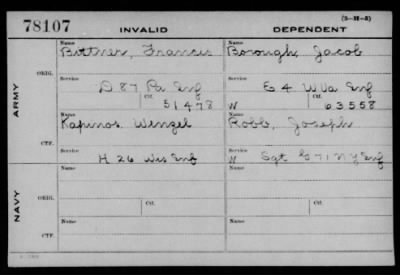 78107 INVALID DEPENDENT (3-H-3)
Name Name
Bittner, Francis Borough, Jacob
ORIG.
Service Service
D 87 Pa Inf E 4 W Va Inf
Ctf. Ctf.
51478 W 63558
ARMY
Name Name
Kapinos, Wenzel Robb, Joseph
CTF.
Service Service
H 26 Wis Inf W Sgt G 71 N Y Inf
Name Name
ORIG.
Service Ctf. Service Ctf.
NAVY
Name Name
CTF.
Service Service